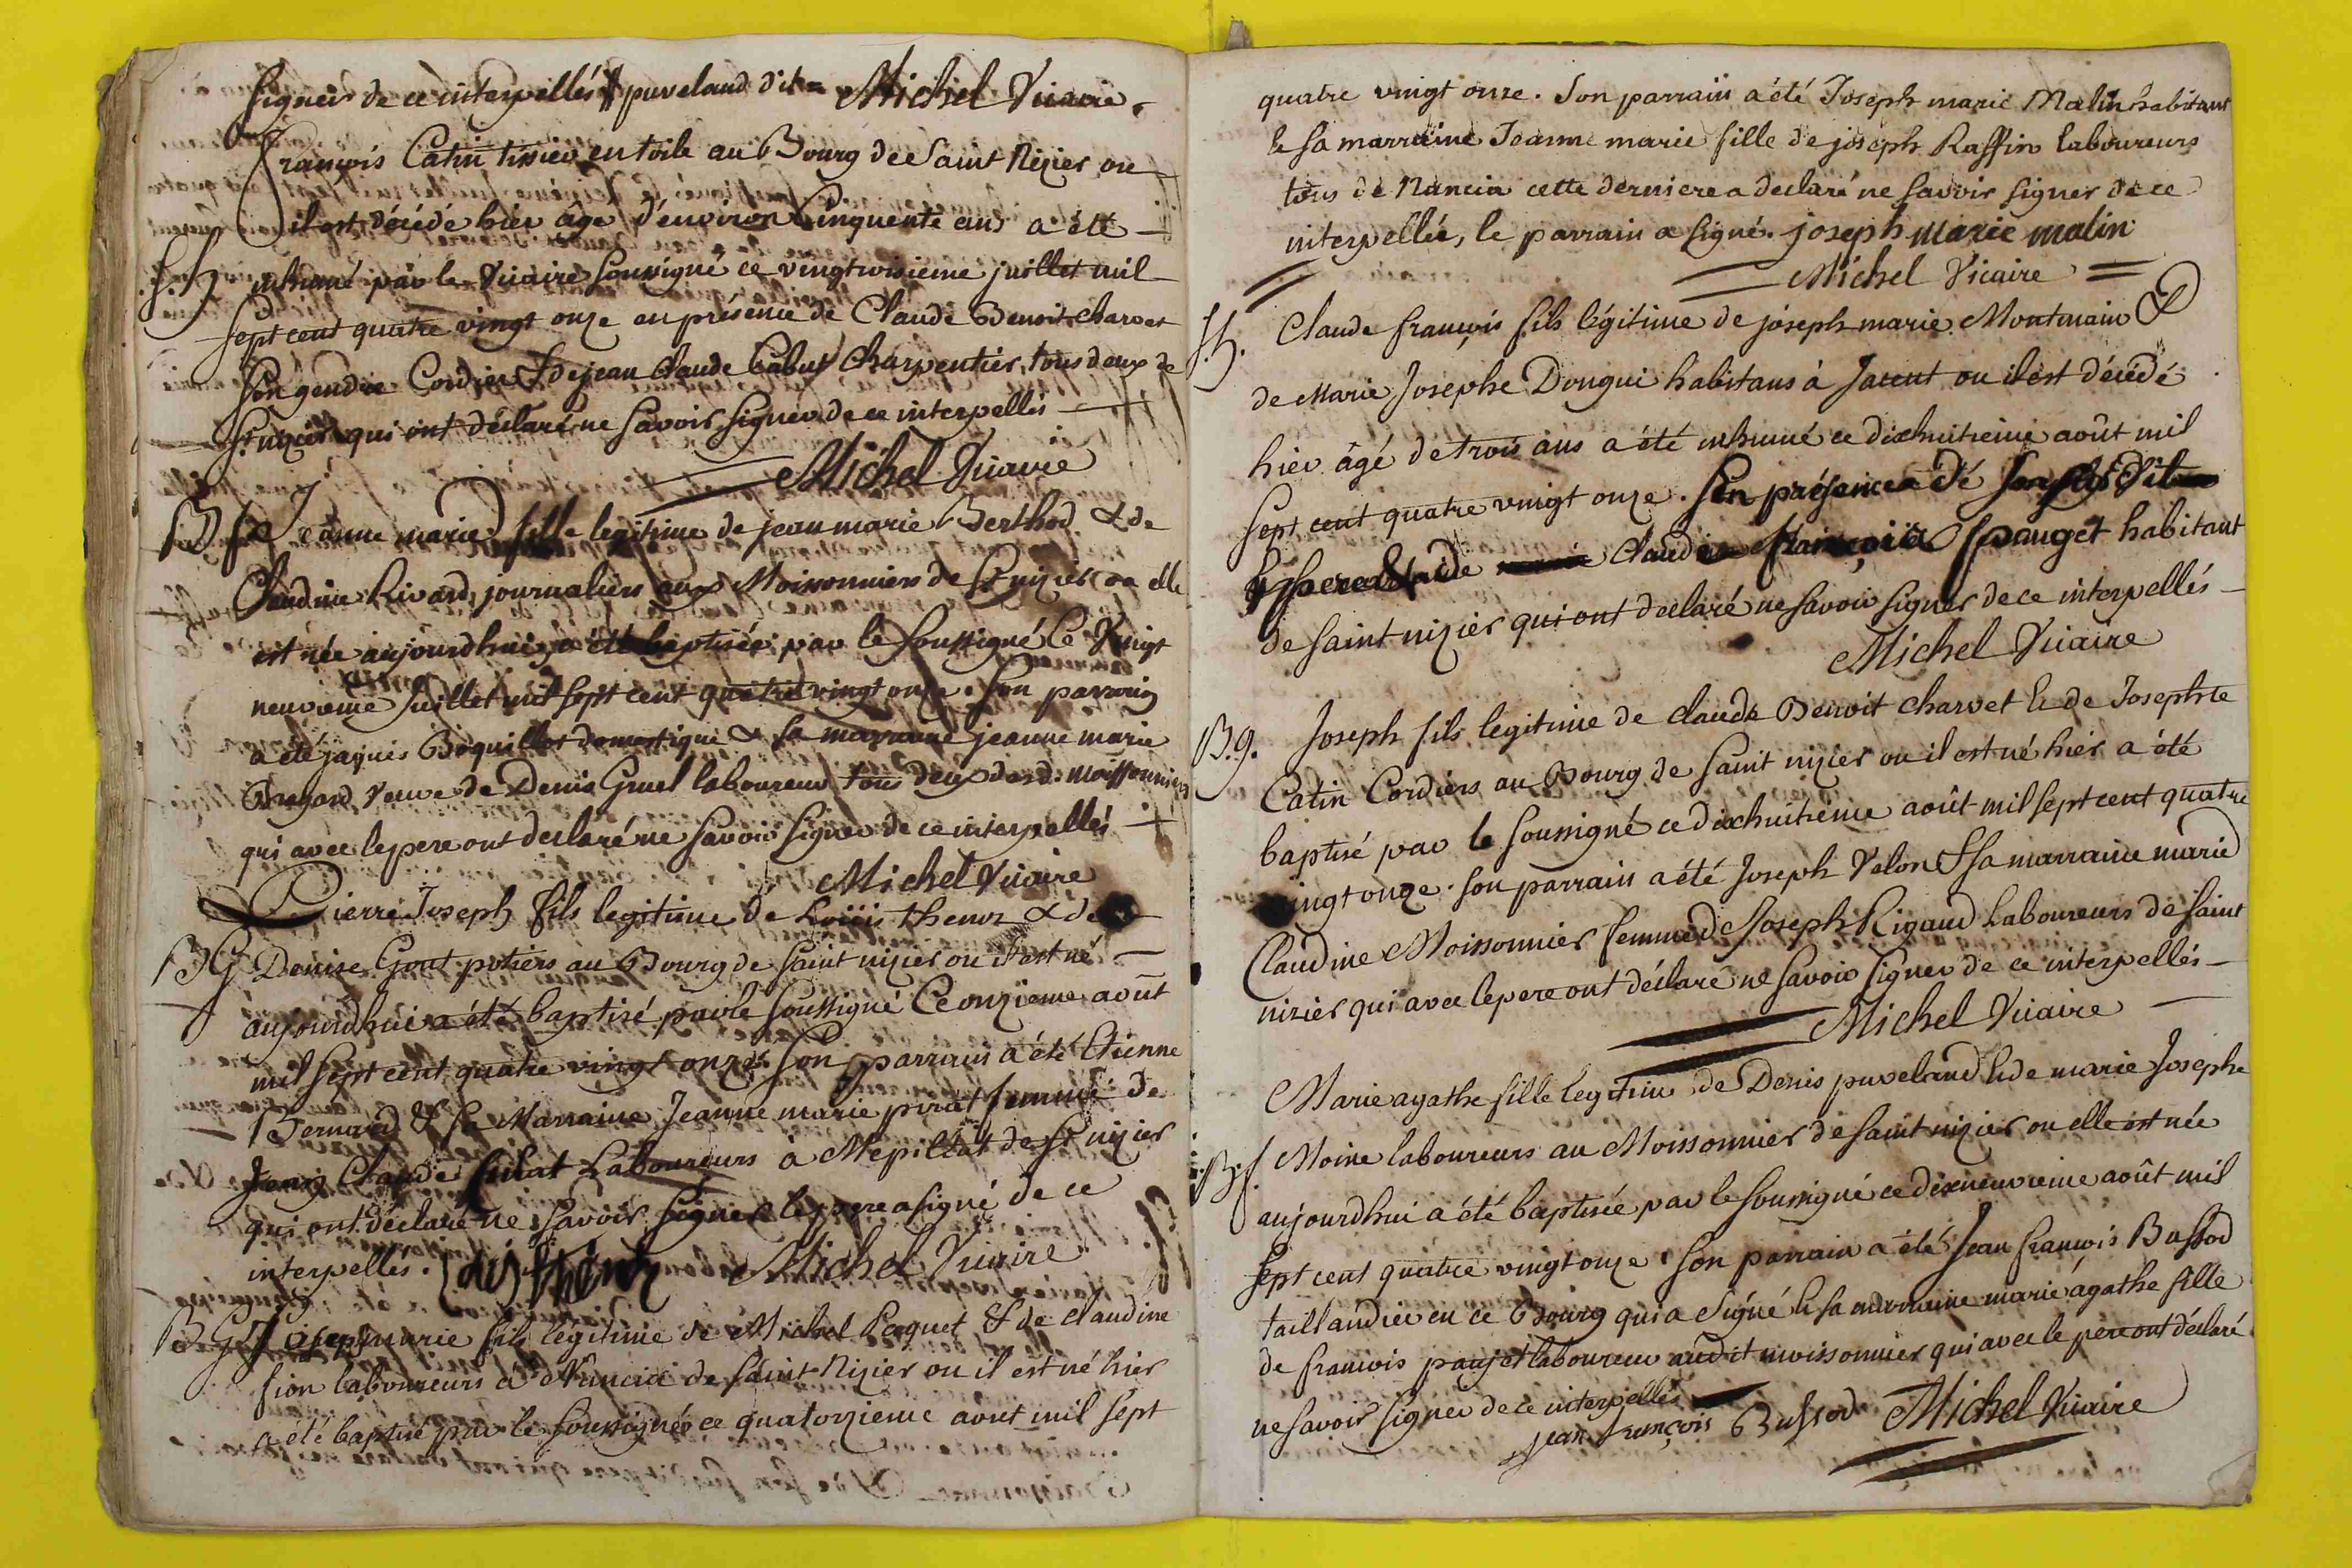 signer de ce interpellés puveland dit = Michel Vicaire.
François Catin tissier en toile au Bourg de Saint Nizier ou
il est décédé hier âgé d'environ Cinquente ans a été
inhumé par le Vicaire soussigné ce vingtroisieme juillet mil
sept cent quatre vingt onze en présence de Claude Benoit charvet
son gendre Cordier & de jean Claude Cabut Charpentier, tous deux de
St nizier qui ont déclaré ne Savoir signer de ce interpellés
Michel Vicaire
B f Jeanne marie fille legitime de jean marie Berthod & de
Claudine Rivard, journaliers aux Moissonniers de St nizier ou elle
est née aujourdhui, a été baptisée par le soussigné le Vingt
neuvieme Juillet mil sept cent quatre vingt onze. Son parrain
a été jaques Boquillot domestique & sa marraine jeanne marie
veuve de Denis Gruel laboureur tous deux desd. moissonniers
qui avec le pere ont declaré ne Savoir signer de ce interpellés
Michel Vicaire
Pierre Joseph fils legitime de Loüis thenoz & de
B G Denise Gout potiers au Bourg de saint nizier ou il est né
aujourdhui a été baptisé par le soussigné Ce onzieme août
mil sept cent quatre vingt onze. Son parrain a été Etienne
Bernard & sa Marraine Jeanne marie pirat femme de
Jean Claude Laboureurs a Mepillat de St nizier
qui ont déclaré ne Savoir signer le pere a signé de ce
interpellés. Michel Vicaire
B G Joseph marie fils legitime de Michel Paquet & de Claudine
sion laboureurs a Nancia de saint Nizier ou il est né hier
a été baptisé par le soussigné ce quatorzieme aout mil sept
quatre vingt onze. Son parrain a été Joseph marie Malin habitant
& sa marraine Jeanne marie fille de joseph Raffin laboureurs
tous de Nancia cette derniere a declaré ne savoir signer de ce
interpellée, le parrain a signé. joseph marie malin
Michel Vicaire
f. h. Claude françois fils légitime de joseph marie Montmain &
de Marie Josephe Dongui habitans à Jacent ou il est décédé
hier âgé de trois ans a été inhumé ce dixhuitieme août mil
sept cent quatre vingt onze. En présence de
Claude françois pauget habitant
de saint nizier qui ont declaré ne savoir signer de ce interpellés
Michel Vicaire
B. g. Joseph fils legitime de claude Benoit charvet & de Josephte
Catin Cordiers au Bourg de saint nizier ou il est né hier a été
baptisé par le soussigné ce dixhuitieme août mil sept cent quatre
vingt onze. son parrain a été Joseph Velon & sa marraine marie
Claudine Moissonnier femme de Joseph Rigaud Laboureurs de saint
nizier qui avec le pere ont déclaré ne savoir signer de ce interpellés
Michel Vicaire
Marie agathe fille legitime de Denis puveland & de marie Josephe
B. f. Moine laboureurs au Moissonnier de saint nizier ou elle est née
aujourdhui a été baptisée par le soussigné ce dixneuvieme août mil
sept cent quatre vingt onze. Son parrain a été Jean françois Bussod
taillandier en ce Bourg qui a signé & sa marraine marie agathe fille
de françois paujet laboureur audit moissonnier qui avec le pere ont déclaré
ne savoir signer de ce interpellés
jean François Bussod Michel Vicaire